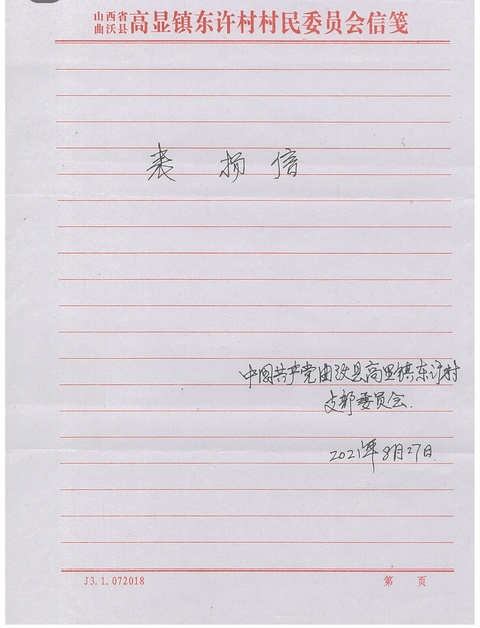 山西省
曲沃县 高显镇东许村村民委员会信笺
表 扬 信
中国共产党曲沃县高显镇东许村
支部委员会.
2021年8月27日
J3.1.072018 第 页